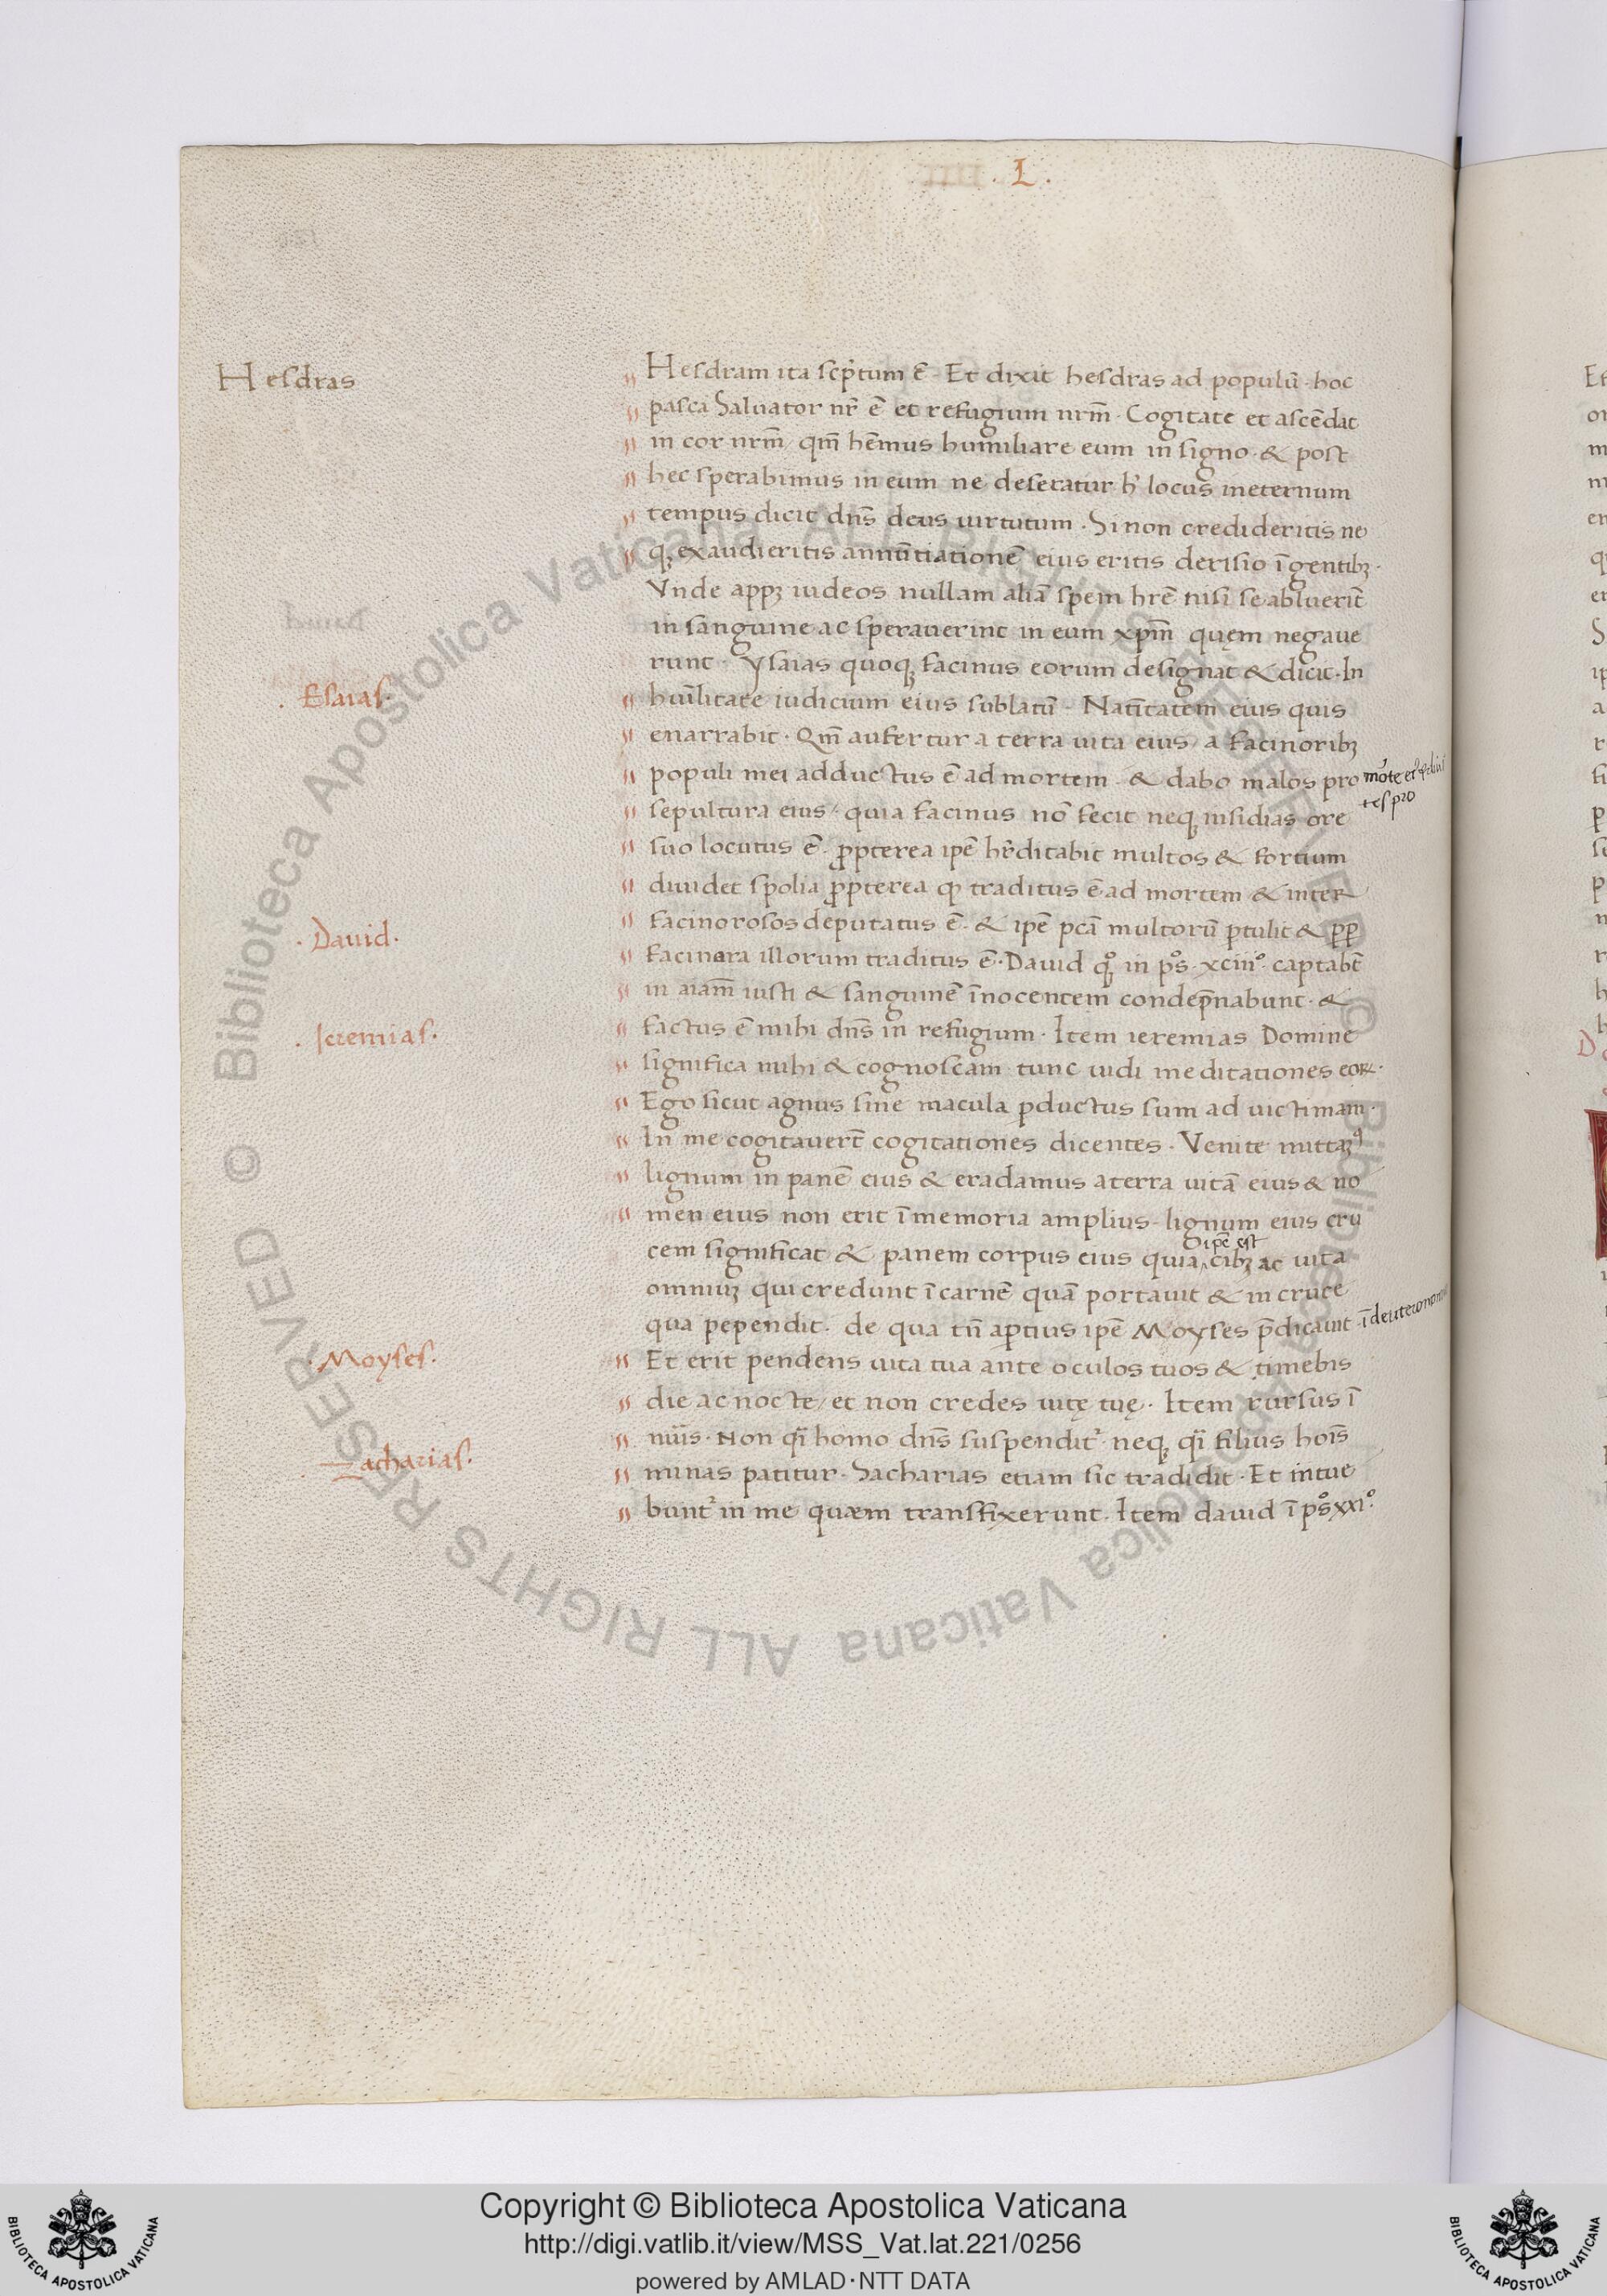 . L .
Hesdras
Hesdram ita scp̃tum ẽ. Et dixit hesdras ad populũ. hoc
pasca Saluator nr̃ ẽ et refugium nrm̃. Cogitate et ascẽdat
in cor nrm̃ qm̃ hẽmus humiliare eum in signo. & post
hec sperabimus in eum ne deseratur h' locus ineternum
tempus dicit dñs deus uirtutum. Si non credideritis ne
q; exaudieritis annũtiationẽ eius eritis derisio ĩ gentib;.
Vnde app; iudeos nullam aliã spem hrẽ nisi se abluerĩt
in sanguine ac sperauerint in eum xpm̃ quęm negaue
runt. Ysaias quoq; facinus eorum designat & dicit. In
. Esaias.
huĩlitate iudicium eius sublatũ. Natĩtatem eius quis
enarrabit. Qm̃ aufertur a terra uita eius / a facinorib;
populi mei adductus ẽ ad mortem. & dabo malos pro
sepultura eius / quia facinus nõ fecit neq; insidias ore
tes pro
suo locutus ẽ. propterea ipẽ hr̃ditabit multos & fortium
diuidet spolia propterea q traditus ẽ ad mortem & inter
facinorosos deputatus ẽ. & ipẽ pcã multorũ ptulit & pp
. Dauid.
facinora illorum traditus ẽ. Dauid q;° in ps°. xciii°. captabt̃
in aiam̃ iusti & sanguinẽ ĩnocentem condep̃nabunt. &
factus ẽ mihi dñs in refugium. Item ieremias Domine
. Ieremias.
significa mihi & cognoscam tunc uidi meditationes eoꝝ.
Ego sicut agnus sine macula pductus sum ad uictimam.
In me cogitauert̃ cogitationes dicentes. Venite mittaꝫ⁹
lignum in panẽ eius & eradamus aterra uitã eius & no
men eius non erit ĩ memoria amplius. lignum eius cru
ipẽ est
cem significat & panem corpus eius quia cib; ac uita
omniuꝫ qui credunt ĩ carnẽ quã portauit & in cruce
qua pependit. de qua tñ aptius ipẽ Moyses p̃dicauit
. Moyses.
Et erit pendens uita tua ante oculos tuos & timebis
die ac nocte / et non credes uitę tuę. Item rursus ĩ
nũis. Non qĩ homo dñs suspendit². neq; qĩ filius hoĩs
. Zacharias.
minas patitur. Sacharias etiam sic tradidit. Et intue
bunt² in me quæm transfixerunt. Item dauid ĩ ps° xxi°.
Copyright © Biblioteca Apostolica Vaticana
http://digi.vatlib.it/view/MSS_Vat.lat.221/0256
powered by AMLAD·NTT DATA